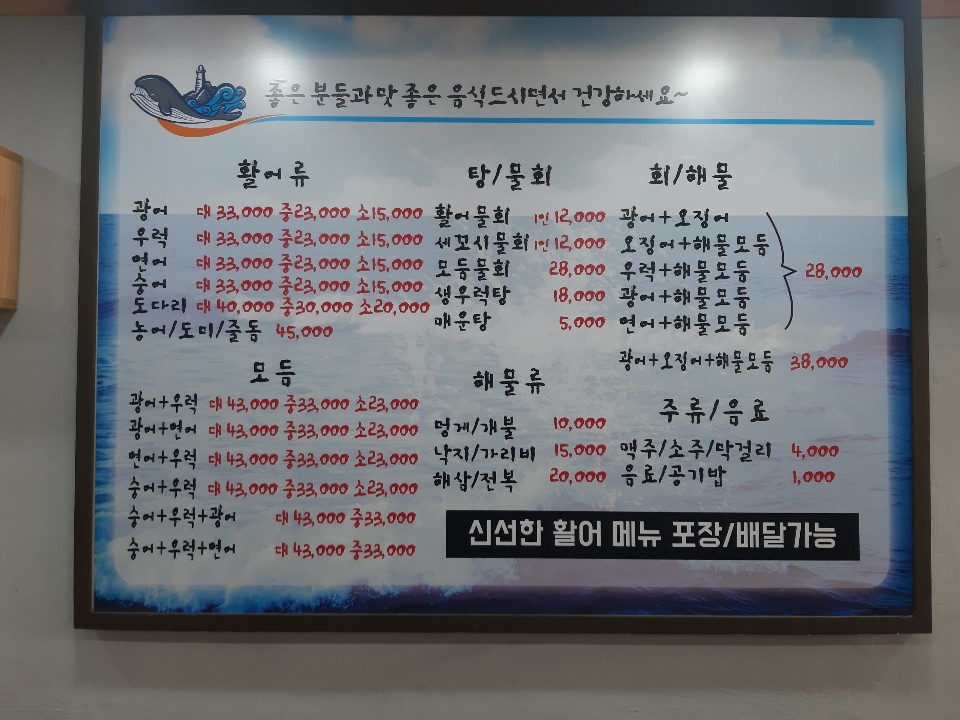 좋은 분들과 맛 좋은 음식드시면서 건강하세요~
활어류
광어 대 33,000 중23,000 소15,000
우럭 대 33,000 중23,000 소15,000
연어 대 33,000 중23,000 소15,000
숭어 대 33,000 중23,000 소15,000
도다리 대 40,000 중30,000 소20,000
농어/도미/줄돔 45,000
모듬
광어+우럭 대 43,000 중33,000 소23,000
광어+연어 대 43,000 중33,000 소23,000
연어+우럭 대 43,000 중33,000 소23,000
숭어+우럭 대 43,000 중33,000 소23,000
숭어+우럭+광어 대 43,000 중33,000
숭어+우럭+연어 대 43,000 중33,000
탕/물회
활어물회 1인 12,000
세꼬시물회 1인 12,000
모듬물회 28,000
생우럭탕 18,000
매운탕 5,000
해물류
멍게/개불 10,000
낙지/가리비 15,000
해삼/전복 20,000
회/해물
광어+오징어
오징어+해물모듬
우럭+해물모듬 28,000
광어+해물모듬
연어+해물모듬
광어+오징어+해물모듬 38,000
주류/음료
맥주/소주/막걸리 4,000
음료/공기밥 1,000
신선한 활어 메뉴 포장/배달가능